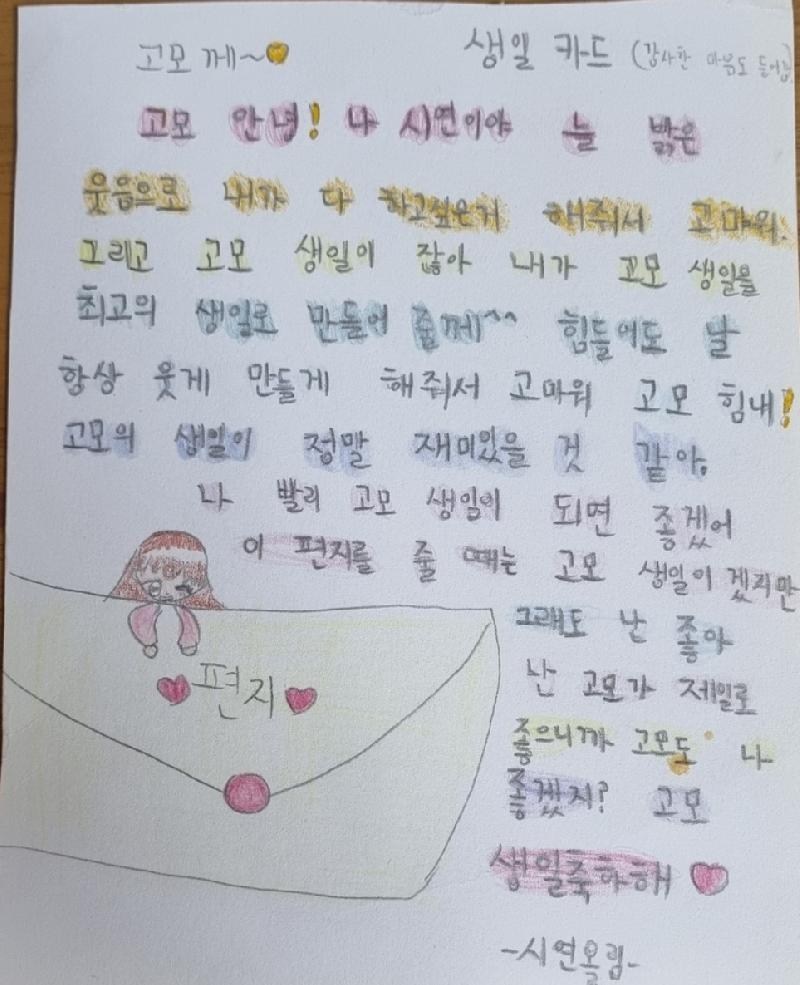 고모께~
생일 카드 (감사한 마음도 들어감)
고모 안녕! 나 시연이야 늘 밝은
웃음으로 내가 다 하고싶은거 해줘서 고마워.
그리고 고모 생일이 잖아 내가 고모 생일을
최고의 생일로 만들어 줄께^^ 힘들어도 날
항상 웃게 만들게 해줘서 고마워 고모 힘내!
고모의 생일이 정말 재미있을 것 같아.
나 빨리 고모 생일이 되면 좋겠어
이 편지를 줄 때는 고모 생일이겠지만
그래도 난 좋아
난 고모가 제일로
좋으니까 고모도 나
좋겠지? 고모
생일축하해
-시연올림-
편지